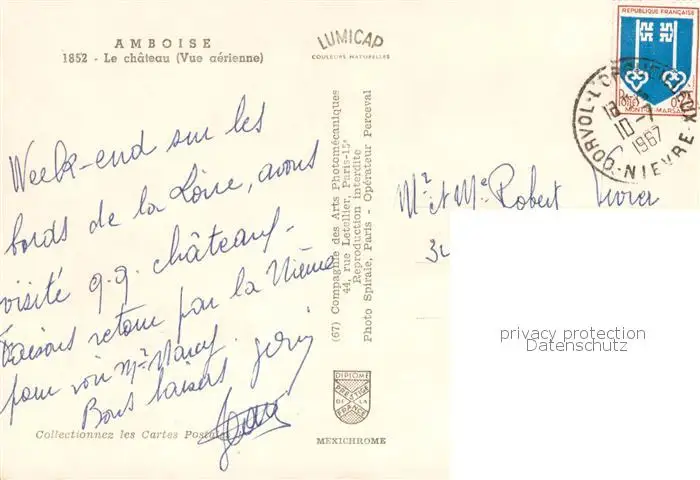 AMBOISE
1852 - Le château (Vue aérienne)
LUMICAP
COULEURS NATURELLES
REPUBLIQUE FRANÇAISE
MONT-DE-MARSAN
CORVOL-L'ORGUEILLEUX
18
10-7
1967
NIEVRE
Week-end sur les
bords de la Loire, avons
visité q.q. châteaux.
Faisons retour par la Nièvre
pour voir Mr Nancy.
Bons baisers
Mr et Me Robert
34
(67) Compagnie des Arts Photomécaniques
44, rue Letellier, Paris-15e
Reproduction interdite
Photo Spirale, Paris - Opérateur Perceval
privacy protection
Datenschutz
DIPLOME
PRESTIGE
DE LA
FRANCE
MEXICHROME
Collectionnez les Cartes Postales